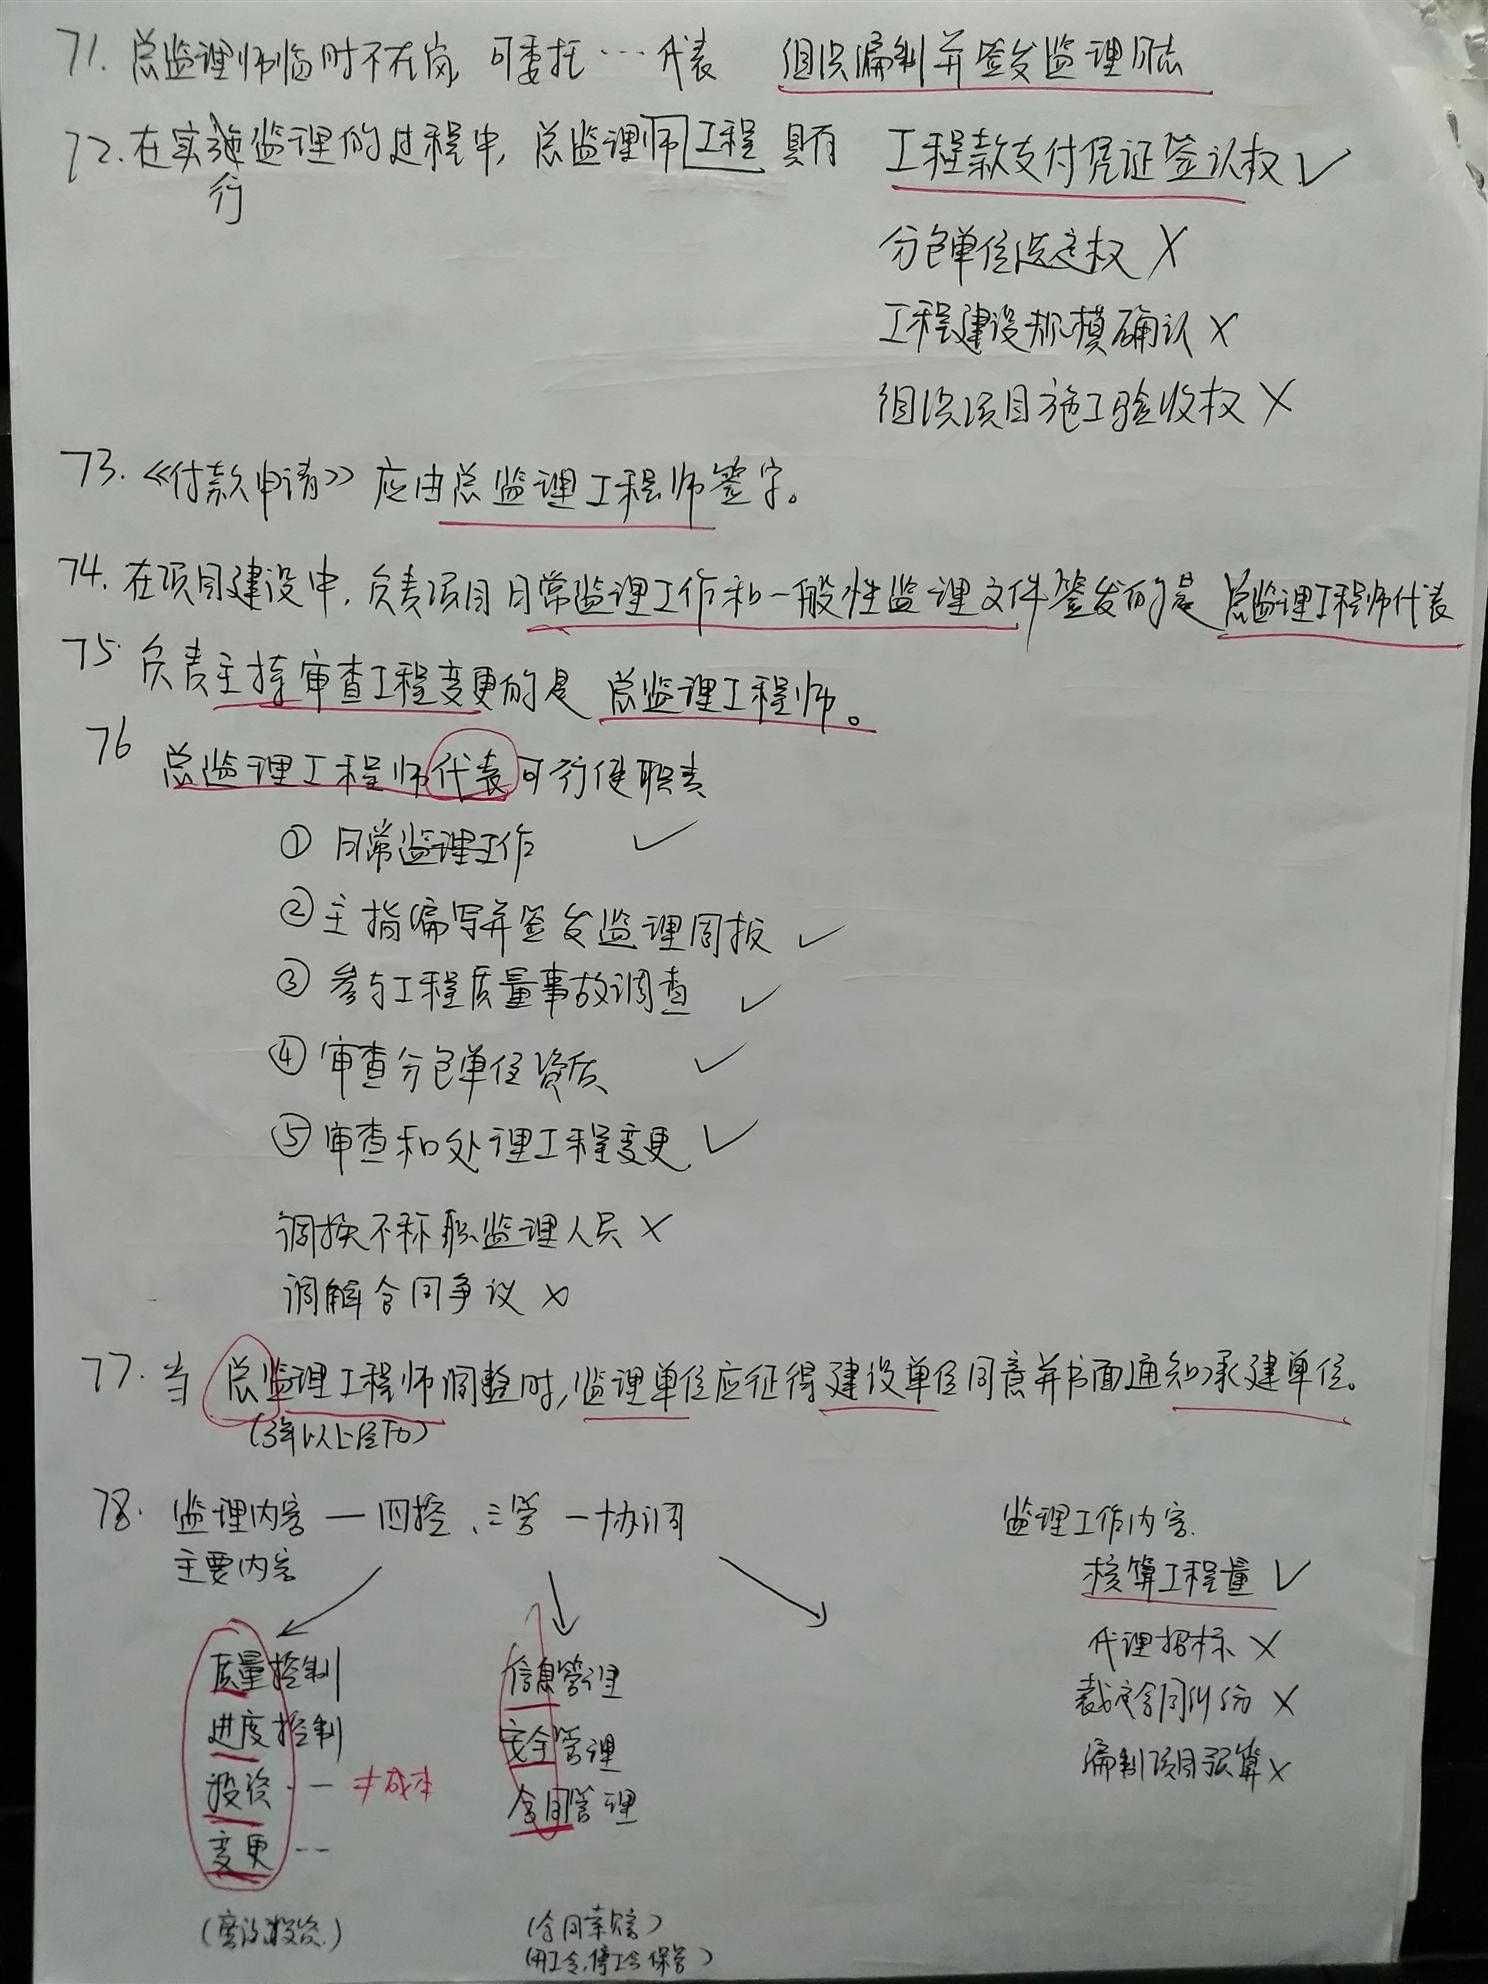 71. 总监理师临时不在岗, 可委托…代表 组织编制并签发监理日志
72. 在实施监理的过程中, 总监理师工程 具有 工程款支付凭证签认权 ✓
行
分包单位选定权 ✗
工程建设规模确认 ✗
组织项目施工验收权 ✗
73. 《付款申请》应由总监理工程师签字。
74. 在项目建设中, 负责项目日常监理工作和一般性监理文件签发的是 总监理工程师代表
75. 负责主持审查工程变更的是 总监理工程师。
76 总监理工程师代表可行使职责
① 日常监理工作 ✓
② 主指编写并签发监理周报 ✓
③ 参与工程质量事故调查 ✓
④ 审查分包单位资质 ✓
⑤ 审查和处理工程变更 ✓
调换不称职监理人员 ✗
调解合同争议 ✗
77. 当总监理工程师调整时, 监理单位应征得建设单位同意并书面通知承建单位。
(3年以上经历)
78. 监理内容 — 四控、三管 一协调
主要内容
质量控制
进度控制
投资 -- ≠成本
变更 --
信息管理
安全管理
合同管理
(合同索赔)
监理工作内容.
核算工程量 ✓
代理招标 ✗
裁定合同纠纷 ✗
编制项目预算 ✗